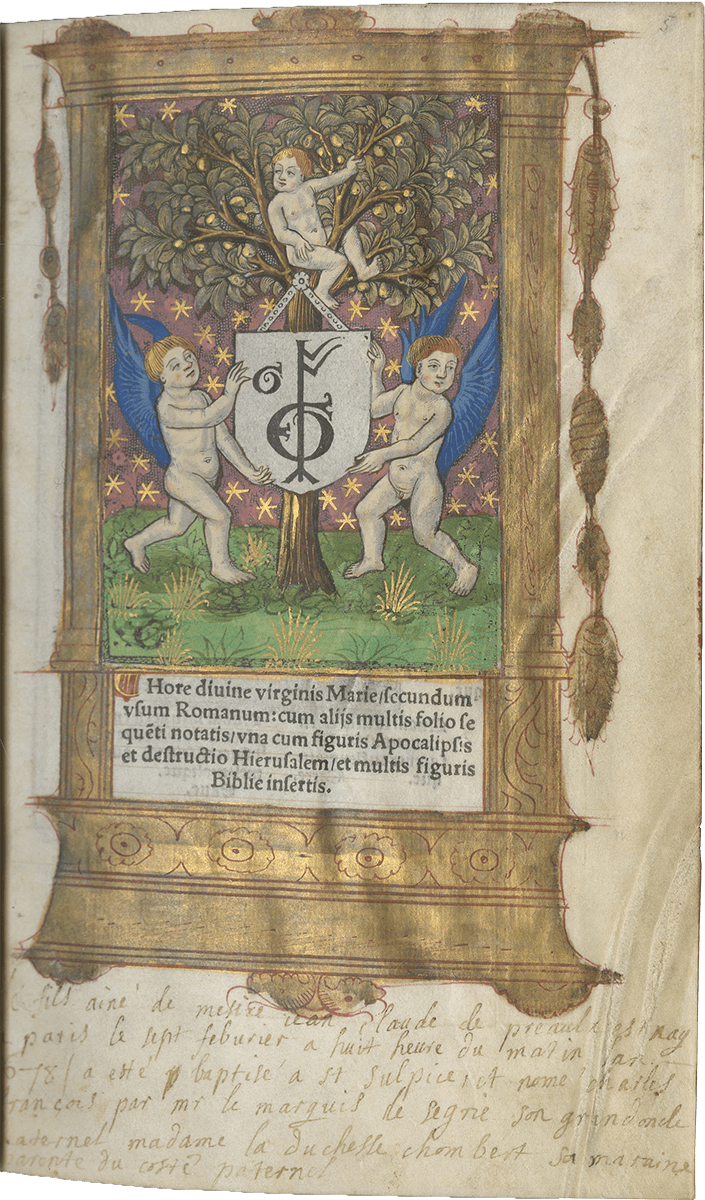 5
Hore diuine virginis Marie/secundum
vsum Romanum:cum alijs multis folio se
quēti notatis/vna cum figuris Apocalipsis
et destructio Hierusalem/et multis figuris
Biblie insertis.
fils ainé de messire iean claude de est nay
a paris le sept feburier a huit heure du matin lan
1678 / a esté baptisé a st sulpice, et nomé charles
francois par mr le marquis de segrie son grandoncle
paternel madame la duchesse chombert sa maraine
parente du costé paternel